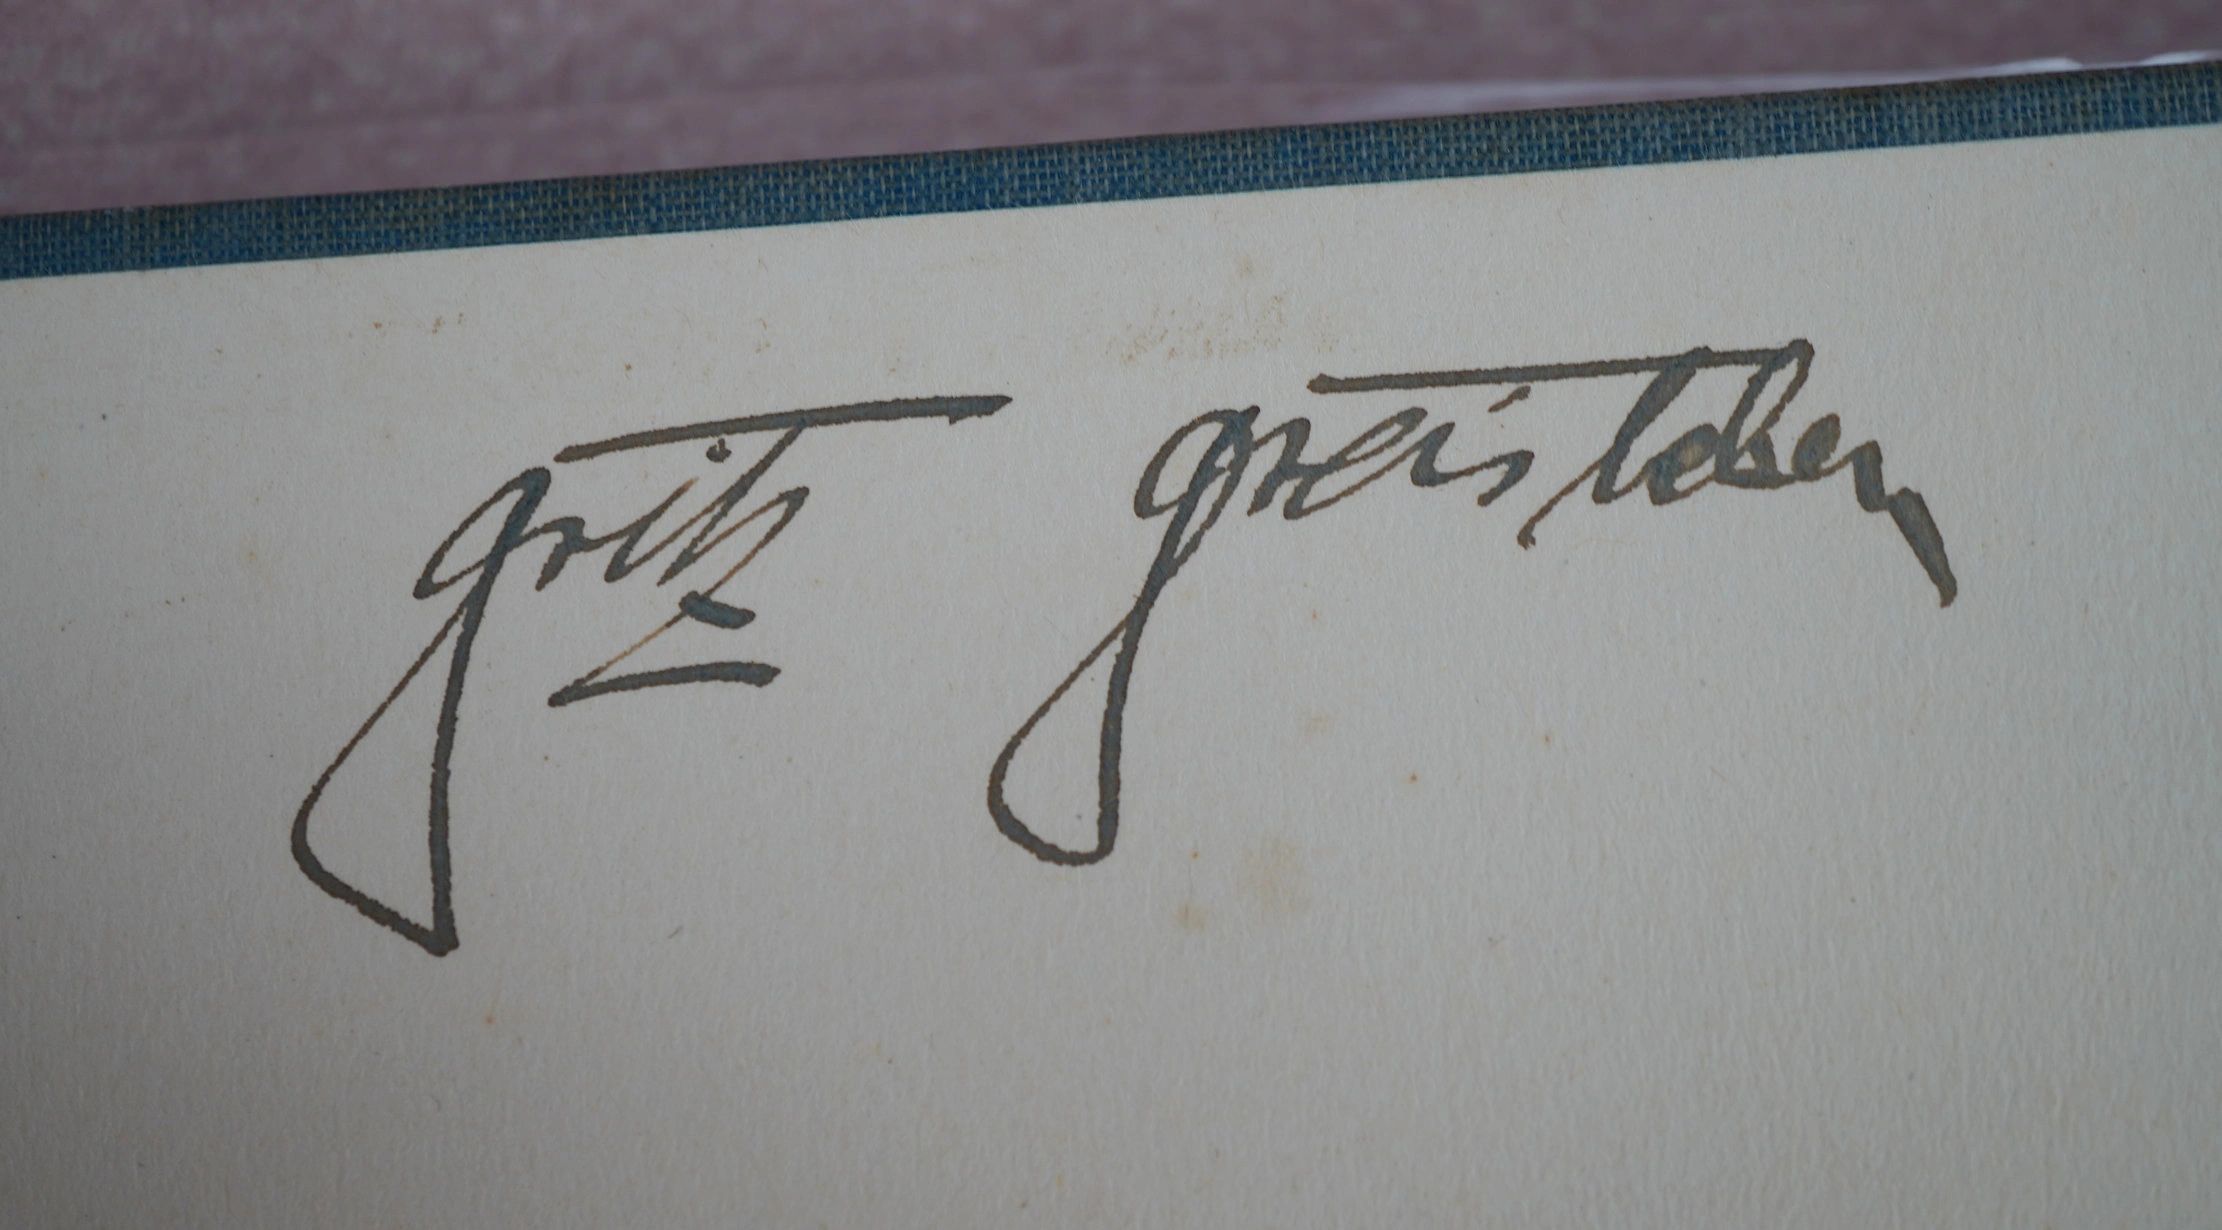 Fritz Freisleben